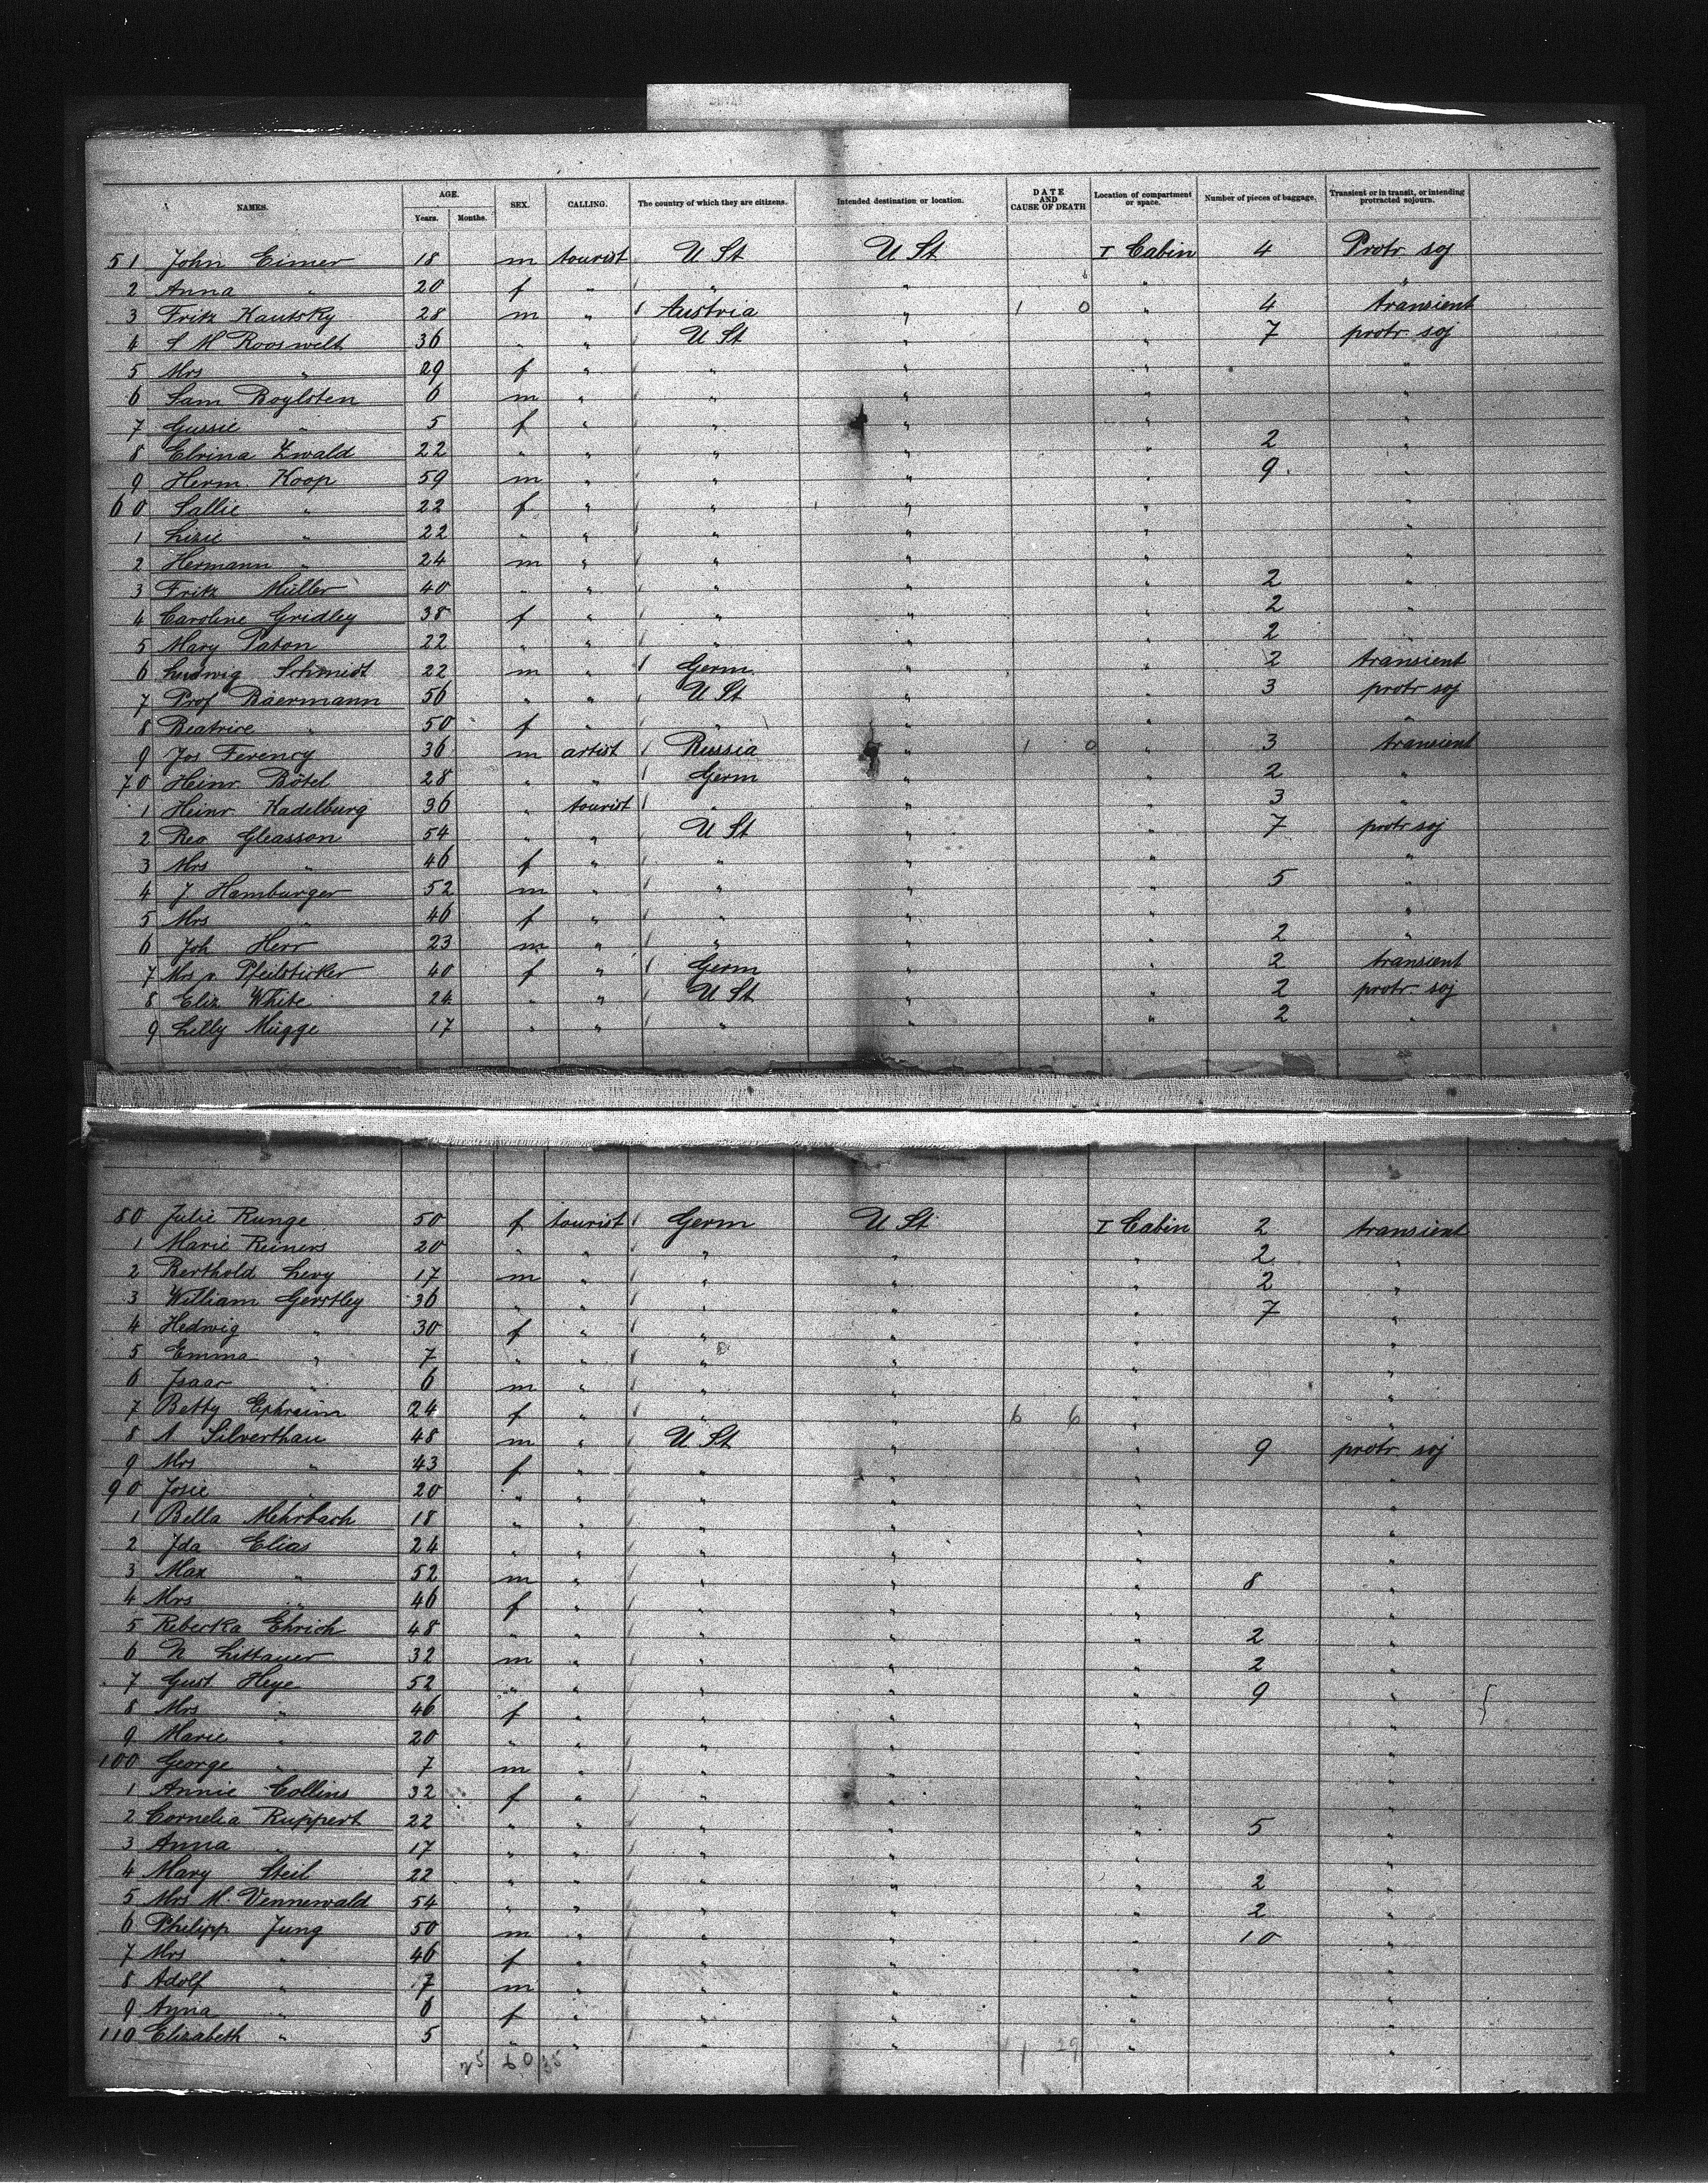 NAMES. AGE. Years. Months. SEX. CALLING. The country of which they are citizens. Intended destination or location. DATE AND CAUSE OF DEATH Location of compartment or space. Number of pieces of baggage. Transient or in transit, or intending protracted sojourn.
51 John Eimer 18 m tourist U St U St I Cabin 4 Protr. soj
2 Anna " 20 f " " " " "
3 Fritz Kautsky 28 m " Austria " 1 0 " 4 transient
4 S M Rooswelt 36 " " U St " " 7 protr. soj
5 Mrs " 29 f " " " " "
6 Sam Boylsten 6 m " " " " "
7 Gussie " 5 f " " " " "
8 Elvina Zwald 22 " " " " " 2 "
9 Herm Koop 59 m " " " " 9 "
60 Sallie " 22 f " " " " "
1 Lizie " 22 " " " " " "
2 Hermann " 24 m " " " " "
3 Fritz Müller 40 " " " " " 2 "
4 Caroline Gridley 38 f " " " " 2 "
5 Mary Paton 22 " " " " " 2 "
6 Ludwig Schmidt 22 m " Germ " " 2 transient
7 Prof Baermann 56 " " U St " " 3 protr soj
8 Beatrice " 50 f " " " " "
9 Jos Ferency 36 m artist Russia " 1 0 " 3 transient
70 Heinr. Bötel 28 " " Germ " " 2 "
1 Heinr Kadelburg 36 " tourist " " " 3 "
2 Rev Gleasson 54 " " U St " " 7 protr soj
3 Mrs " 46 f " " " " "
4 J Hamburger 52 m " " " " 5 "
5 Mrs " 46 f " " " " "
6 Joh Herr 23 m " " " " 2 "
7 Mrs v. Pfeilsticker 40 f " Germ " " 2 transient
8 Eliz White 24 " " U St " " 2 protr. soj
9 Lilly Mügge 17 " " " " " 2 "
80 Julie Runge 50 f tourist Germ U St I Cabin 2 transient
1 Marie Reiners 20 " " " " " 2 "
2 Berthold Levy 17 m " " " " 2 "
3 William Gerstley 36 " " " " " 7 "
4 Hedwig " 30 f " " " " "
5 Emma " 7 " " " " " "
6 Isaac " 6 m " " " " "
7 Betty Ephraim 24 f " " " 6 6 " "
8 N Silverthau 48 m " U St " " 9 protr. soj
9 Mrs " 43 f " " " " "
90 Josie " 20 " " " " " "
1 Bella Mehrbach 18 " " " " " "
2 Ida Elias 24 " " " " " "
3 Max " 52 m " " " " 8 "
4 Mrs " 46 f " " " " "
5 Rebecka Ehrich 48 " " " " " 2 "
6 N Littauer 32 m " " " " 2 "
7 Gust Heye 52 " " " " " 9 "
8 Mrs " 46 f " " " " "
9 Marie " 20 " " " " " "
100 George " 7 m " " " " "
1 Annie Collins 32 f " " " " "
2 Cornelia Ruppert 22 " " " " " 5 "
3 Anna " 17 " " " " " "
4 Mary Steil 22 " " " " " 2 "
5 Mrs M. Vennewald 54 " " " " " 2 "
6 Philipp Jung 50 m " " " " 10 "
7 Mrs " 46 f " " " " "
8 Adolf " 7 m " " " " "
9 Anna " 6 f " " " " "
110 Elizabeth " 5 " " " " " "
25 60 35 1 29